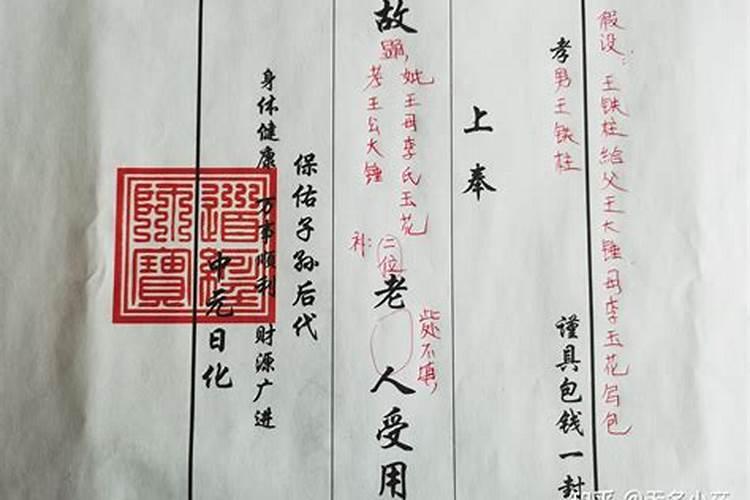 假设：王铁柱给父王大锤母李玉花写包
孝男王铁柱 谨具包钱一封
上奉
故显，妣王母李氏玉花
考王公大锤
补：二位
老人受用
此处不填，
保佑子孙后代
身体健康 万事顺利 财源广进
中元日化
道經師寶
知乎